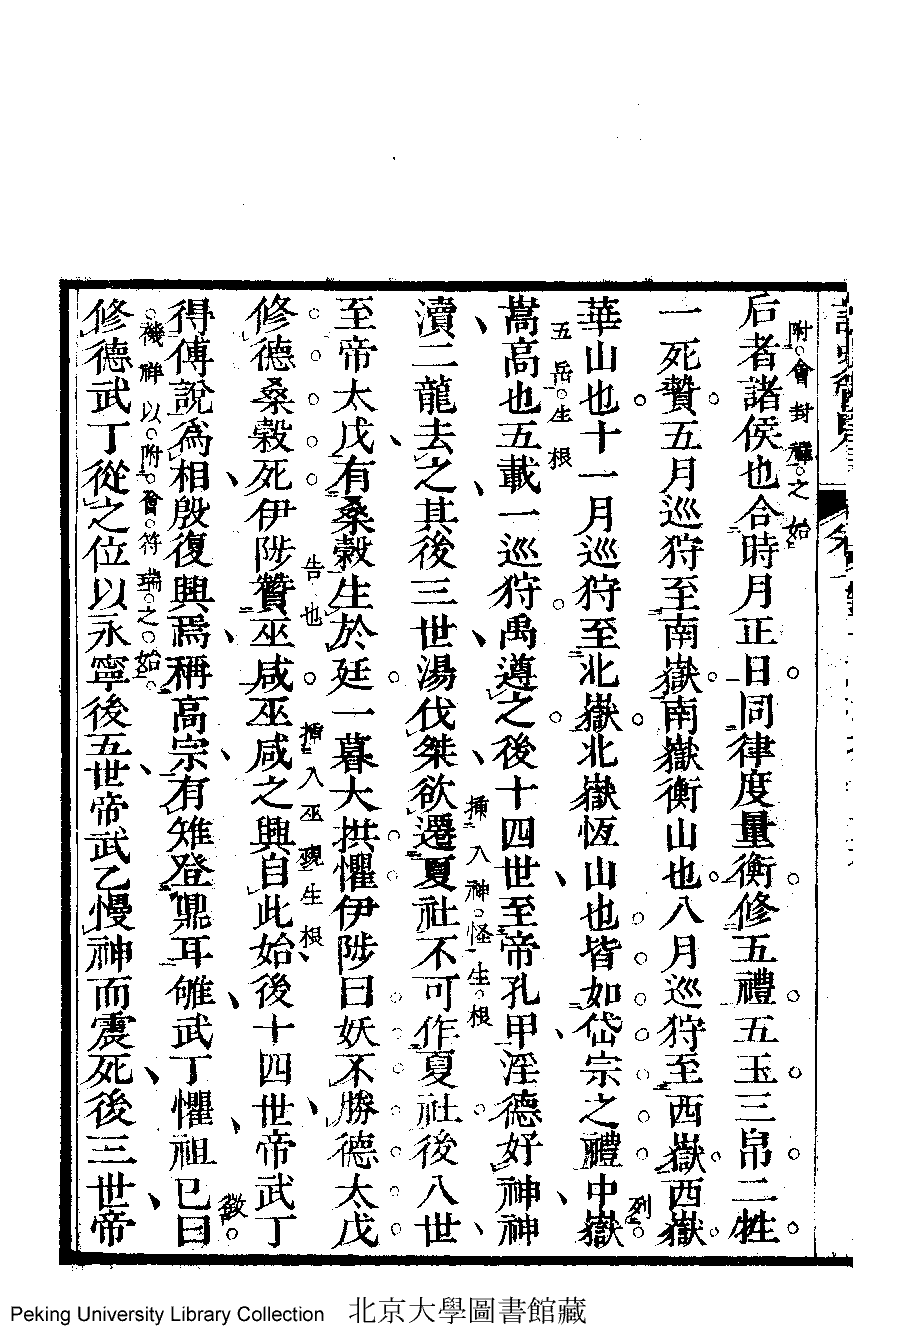 附會封禪之始
后者諸侯也合時月正日同律度量衡修五禮五玉三帛二牲
一死贄五月巡狩至南嶽南嶽衡山也八月巡狩至西嶽西嶽
列
華山也十一月巡狩至北嶽北嶽恆山也皆如岱宗之禮中嶽
五岳生根
嵩高也五載一巡狩禹遵之後十四世至帝孔甲淫德好神神
插入神怪生根
瀆二龍去之其後三世湯伐桀欲遷夏社不可作夏社後八世
至帝太戊有桑榖生於廷一暮大拱懼伊陟曰妖不勝德太戊
告也
插入巫覡生根
修德桑榖死伊陟贊巫咸巫咸之興自此始後十四世帝武丁
徵
得傅說為相殷復興焉稱高宗有雉登鼎耳雊武丁懼祖已曰
禨祥以附會符瑞之始
修德武丁從之位以永寧後五世帝武乙慢神而震死後三世帝
Peking University Library Collection 北京大學圖書館藏